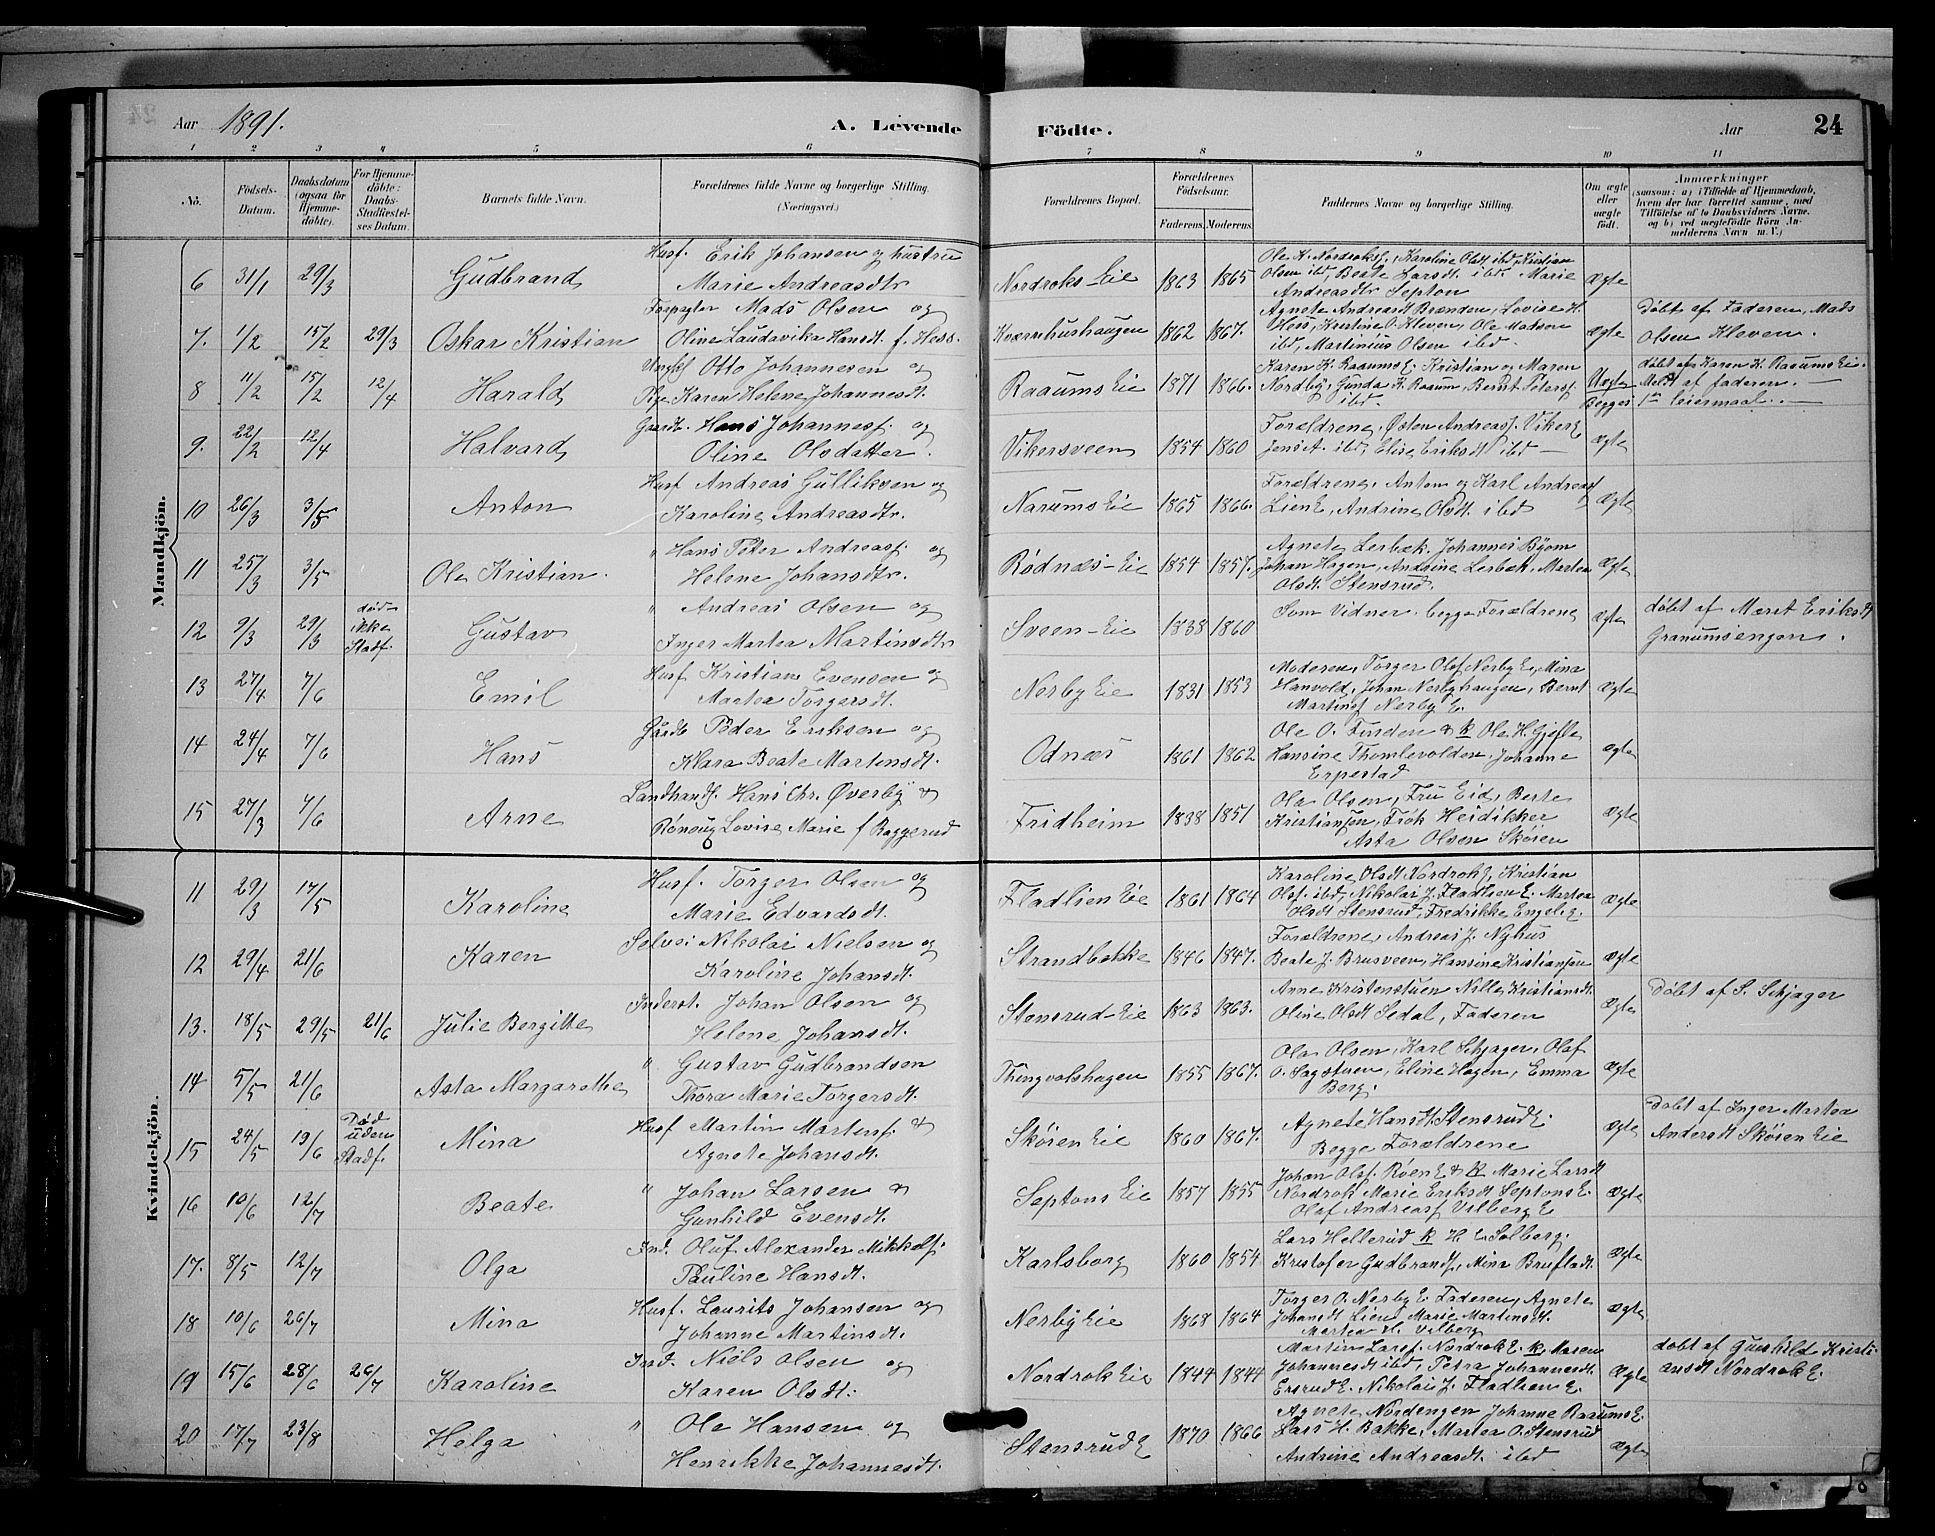 Aar 1891. A. Levende Födte. Aar 24
1 2 3 4 5 6 7 8 9 10 11
No. Födsels-Datum. Daabsdatum (ogsaa for Hjemmedöbte). For Hjemmedöbte: Daabs-Stadfæstelses Datum. Barnets fulde Navn. Forældrenes fulde Navne og borgerlige Stilling. (Næringsvei.) Forældrenes Bopæl. Forældrenes Födselsaar. Faderens. Moderens. Faddernes Navne og borgerlige Stilling. Om ægte eller uægte födt. Anmærkninger (saasom: a) i Tilfælde af Hjemmedaab, hvem der har forrettet samme, med Tilföielse af to Daabsvidners Navne, og b) ved uægtefödte Börn Anmelderens Navn m. V.)
Mandkjön.
6 31/1 29/3 Gudbrand Husf. Erik Johansen og hustru
Marie Andreasdtr Nordroks-Eie 1863 1865 Ole K. Nordroksf., Karoline Olsdt ibd, Kristian
Olsen ibd, Beate Larsdt. ibd Marie
Andreasdtr Septon ægte
7. 1/2 15/2 29/3 Oskar Kristian Forpagter Mads Olsen og
Oline Laudavika Hansdt. f. Hess. Kværnhushaugen 1862 1867. Agnete Andreasdt Brænden, Lovise H.
Hess, Kristine O. Kleven, Ole Madsen
ibd, Martinius Olsen ibd. ægte Döbt af Faderen, Mads
Olsen Kleven.
8 11/2 15/2 12/4 Harald Ungk. Otto Johannesen og
Pige Karen Helene Johannesdt. Raaums Eie 1871 1866. Karen K. Raaums E. Kristian og Maren
Nordby, Gunda K. Raaum, Bernt Petersf.
ibd. Uægte
Begges 1ste leiermaal. döbt af Karen K. Raaums Eie.
Meldt af faderen.
9. 22/2 12/4 Halvard Gaardb. Hans Johannesf. og
Oline Olsdatter. Vikersveen 1854 1860 Forældrene, Østen Andreasf. Viker E
Jenset ibd, Elise Eriksdt ibd ægte
10 26/3 3/5 Anton Husf Andreas Gulliksen og
Karoline Andreasdtr. Narums Eie 1865 1866. Forældrene, Anton og Karl Andreasf
Lien E, Andrine Olsdt. ibd ægte
11 25/3 3/5 Ole Kristian. " Hans Peter Andreasf. og
Helene Johansdtr. Rødnæs-Eie 1854 1857. Agnete Lerbæk. Johannes Byom
Johan Hagen, Andrine Lerbæk, Martea
Olsdt. Stensrud. ægte
12 9/3 29/3 död
ikke
Stadf. Gustav " Andreas Olsen og
Inger Martea Martinsdtr Sveen-Eie 1838 1860 Som Vidner begge Forældrene ægte döbt af Marit Eriksdt
Granumsengen.
13 27/4 7/6 Emil Husf Kristian Evensen og
Martea Torgersdt. Nerby Eie 1831 1853 Moderen, Torger Olsf Nerby E, Mina
Hanvold, Johan Nerbyhaugen, Bernt
Martinsf Nerby E. ægte
14 24/4 7/6 Hans Gårdb Peder Eriksen og
Klara Beate Martensdt. Odnæs 1861 1862 Ole O. Finden & K Ole H. Gjefle
Hansine Thomlevolden, Johanne
Erpestad ægte
15 27/3 7/6 Arne Landhandl. Hans Chr. Øverby &
Rønaug Lovise Marie f Baggerud Fridheim 1838 1851 Ole Olsen, Fru Eid, Berte
Kristiansen, Frök Heidikker
Asta Olsen Sköien ægte
Kvindekjön.
11 29/3 17/5 Karoline Husf. Torger Olsen og
Marie Edvardsdt. Fladlien Eie 1861 1864 Karoline Olsdt Nordrok E, Kristian
Olsf. ibd, Nikolai J. Fladlien E. Martea
Olsdt Stensrud, Fredrikke Engel E. ægte
12 29/4 21/6 Karen Selvei Nikolai Nielsen og
Karoline Johansdt. Strandbække 1846 1847. Forældrene, Andreas J. Nyhus
Beate J. Brusveen, Hansine Kristiansen ægte
13. 18/5 29/5 21/6 Julie Bergitte Inderst. Johan Olsen og
Helene Johansdt. Stensrud-Eie 1863 1863. Anne Kristenstuen Nille Kristiansdt.
Oline Olsdt Sedal, Faderen ægte Döbt af S. Schjager
14 5/5 21/6 Asta Margarethe " Gustav Gudbrandsen
Thora Marie Torgersdt. Thingvolshagen 1855 1867. Ole Olsen, Karl Schjager, Olaf
O. Sagstuen, Eline Hagen, Emma
Berg. ægte
15 24/5 19/6 Død
uden
Stadf. Mina Husf Martin Martinsf &
Agnete Johansdt. Sköien Eie 1860 1867. Agnete Hansdt. Stensrud E.
Begge Forældrene ægte Döbt af Inger Martea
Andersdt Sköien Eie
16 10/6 12/7 Beate " Johan Larsen &
Gunhild Evensdt. Septons Eie 1857 1855 Johan Olsf. Røen E & K Marie Larsdt
Nordrok Marie Eriksdt Septons E.
Olaf Andreasf Vilberg E ægte
17. 8/5 12/7 Olga Ind. Oluf Alexander Mikkelsf.
Pauline Hansdt. Karlsborg 1860 1854 Lars Hellerud K H E Solberg.
Kristofer Gudbrandsf, Mina Brufladt. ægte
18 10/6 26/7 Mina Husf. Laurits Johansen og
Johanne Martinsdt. Nerby Eie 1868 1864 Torger O. Nerby E. Faderen, Agnete
Johansdt Lien, Marie Martinsdt.
Martea H. Vilberg ægte
19 15/6 28/6 26/7 Karoline Ind. Niels Olsen og
Karen Olsdt. Nordrok Eie 1844 1844 Martin Larsf. Nordrok E. K. Maren
Johannesdt ibd, Petra Johannesdt
Ersrud E. Nikolai J. Fladlien E. ægte döbt af Gunhild Kristi-
ansdt Nordrok E.
20 17/7 23/8 Helga " Ole Hansen og
Henrikke Johannesdt. Stensrud E 1870 1866 Agnete Nordengen Johanne Raaums E.
Lars H. Bakke, Martea O. Stensrud
Andrine Andreasdt. ibd ægte